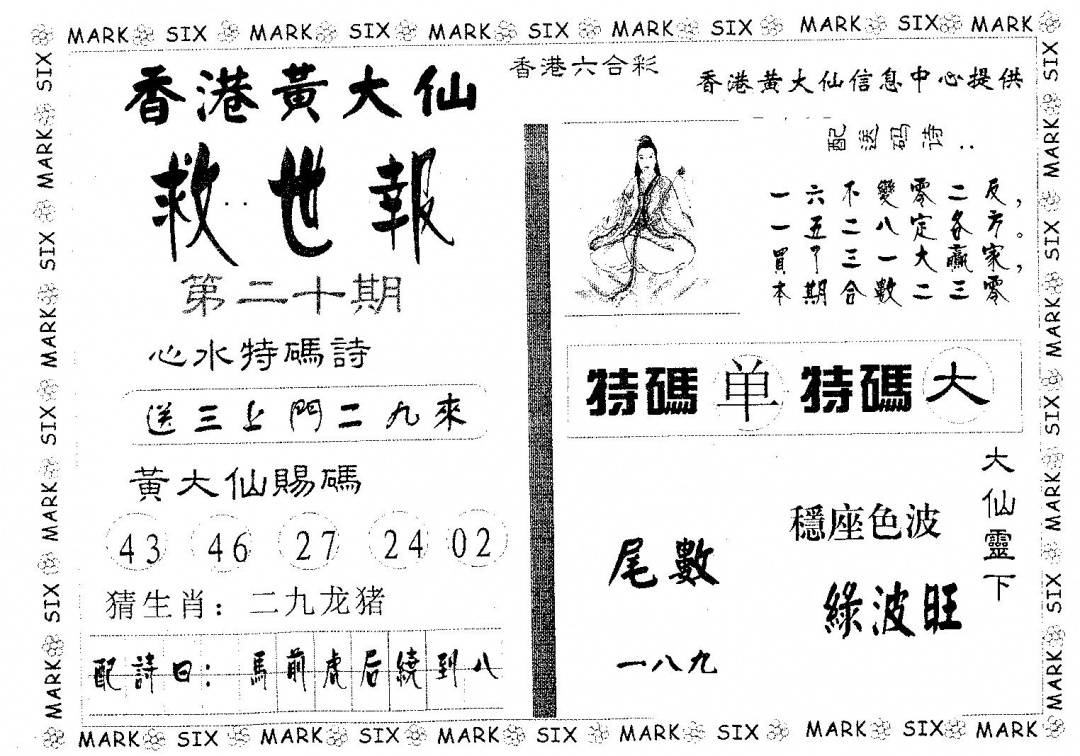 MARK SIX MARK SIX MARK SIX MARK SIX MARK SIX MARK
香港黃大仙
救世報
第二十期
心水特碼詩
送三上門二九來
黃大仙賜碼
43 46 27 24 02
猜生肖：二九龙猪
配詩曰：馬前虎后繞到八
香港六合彩
香港黃大仙信息中心提供
配送码诗：
一六不變零二反，
一五二八定各方。
買了三一大贏家，
本期合數二三零
特碼 单 特碼 大
大仙靈下
穩座色波
綠波旺
尾數
一八九
SIX MARK SIX MARK SIX MARK SIX MARK
SIX MARK SIX MARK SIX MARK SIX MARK
MARK SIX MARK SIX MARK SIX MARK SIX MARK SIX MARK